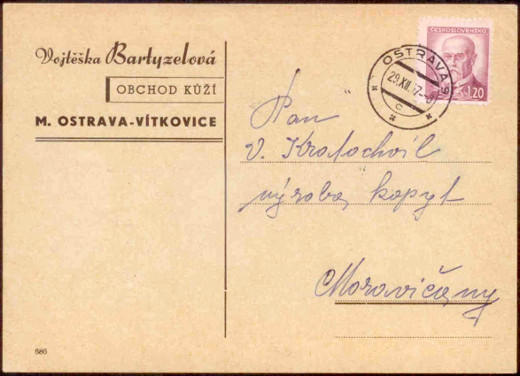 Vojtěška Bartyzelová
OBCHOD KŮŽÍ
M. OSTRAVA-VÍTKOVICE
ČESKOSLOVENSKO
1.20
OSTRAVA
29.XII.
c
Pan
V. Kratochvíl
výroba kopyt
Moravičany